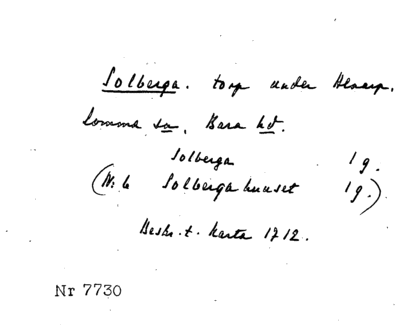 Solberga. torp under Alnarp.
Lomma sn, Bara hd.
Solberga 1 g.
(N: 6 Solbergahuuset 1 g.)
Beskr. t. karta 1712.
Nr 7730